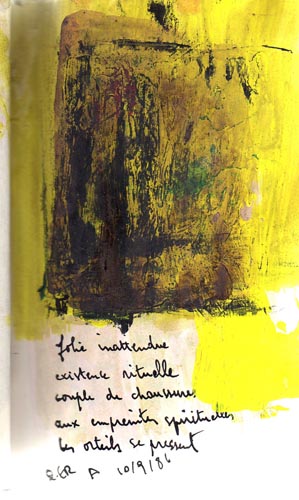 folie inattendue
existence rituelle
couple de chaussures
aux empreintes spirituelles
les orteils se pressent
A 10/9/86